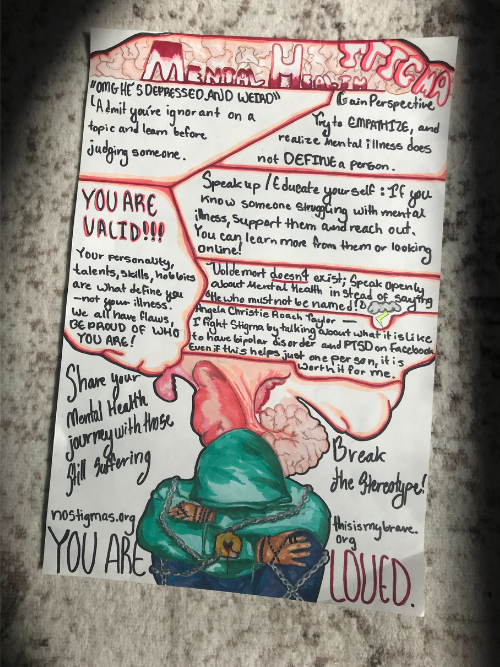 MENTAL HEALTH STIGMA
"OMG HE'S DEPRESSED AND WEIRD"
Admit you're ignorant on a
topic and learn before
judging someone.
Gain Perspective
Try to EMPATHIZE, and
realize mental illness does
not DEFINE a person.
Speak up / Educate yourself: If you
know someone struggling with mental
illness, support them and reach out.
You can learn more from them or looking
online!
YOU ARE
VALID!!!
Your personality,
talents, skills, hobbies
are what define you
-not your illness.
We all have flaws,
BE PROUD OF WHO
YOU ARE!
Voldemort doesn't exist; Speak openly
about Mental Health instead of saying
"He who must not be named!"
Angela Christie Roach Taylor
I fight Stigma by talking about what it is like
to have bipolar disorder and PTSD on Facebook.
Even if this helps just one person, it is
worth it for me.
Share your
Mental Health
journey with those
Still Suffering
Break
the Stereotype!
nostigmas.org
thisismybrave.
org
YOU ARE
LOVED.